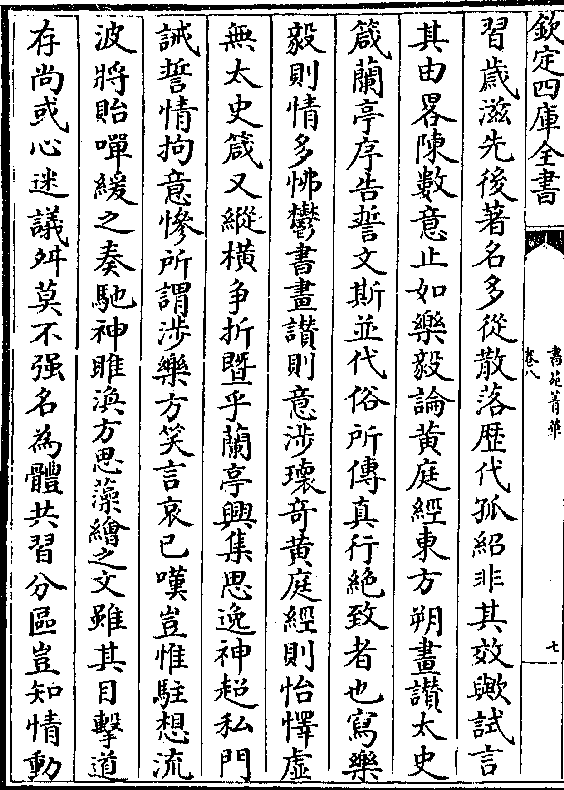 欽定四庫全書
書苑菁華
卷八
七
習歲滋先後著名多從散落歴代孤紹非其效歟試言
其由畧陳數意止如樂毅論黄庭經東方朔畫讚太史
箴蘭亭序告誓文斯並代俗所傳真行絶致者也寫樂
毅則情多怫鬱書畫讚則意涉瓌奇黄庭經則怡懌虛
無太史箴又縱横争折暨乎蘭亭興集思逸神超私門
誡誓情拘意慘所謂涉樂方笑言哀已嘆豈惟駐想流
波將貽嘽緩之奏馳神睢渙方思藻繪之文雖其目擊道
存尚或心迷議舛莫不强名為體共習分區豈知情動